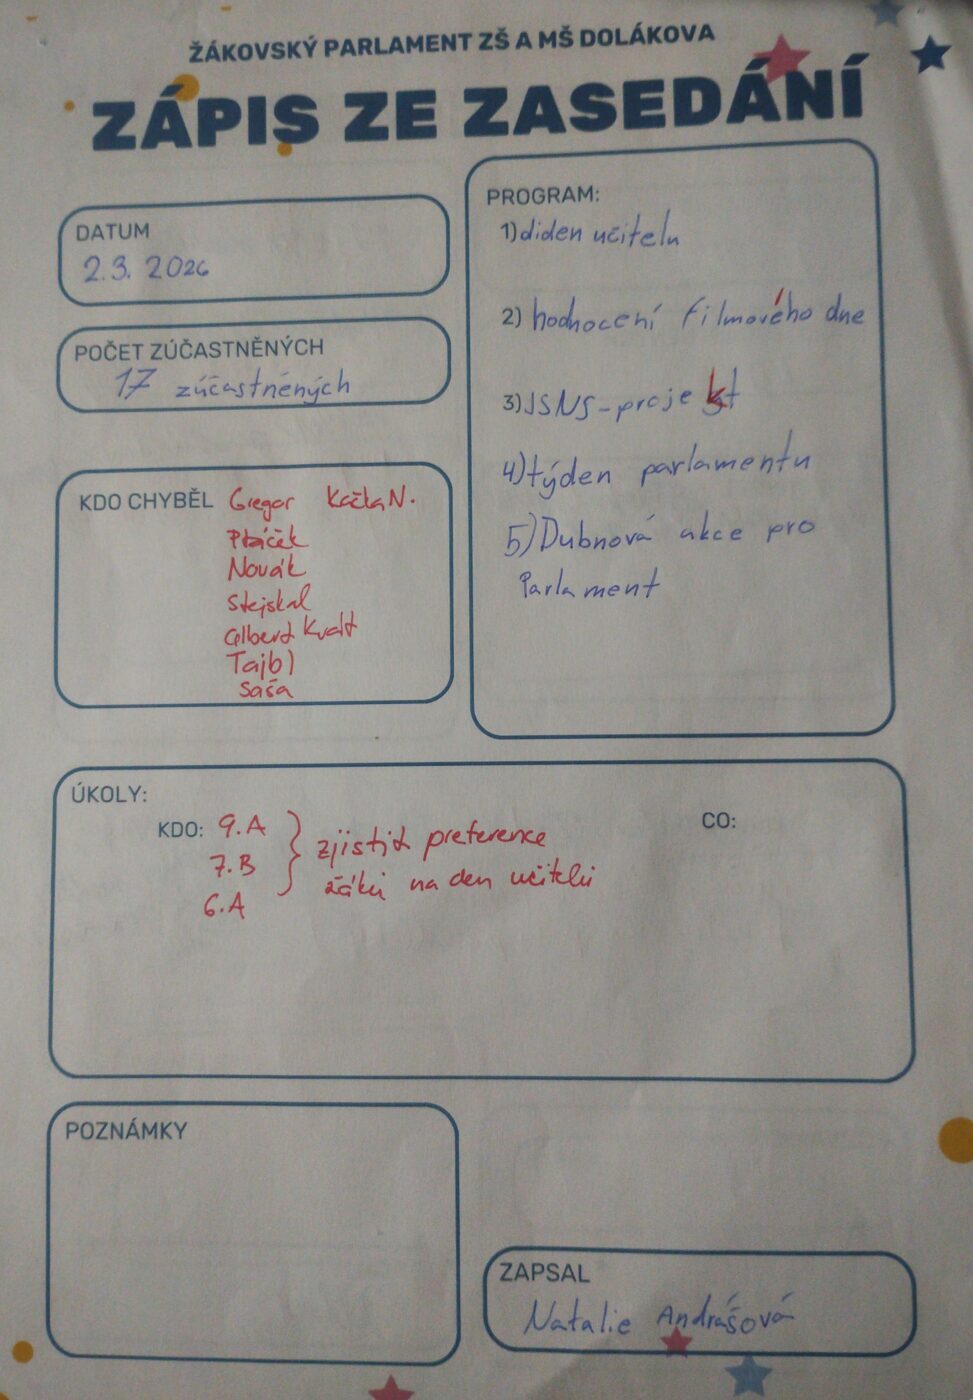 ŽÁKOVSKÝ PARLAMENT ZŠ A MŠ DOLÁKOVA
ZÁPIS ZE ZASEDÁNÍ
DATUM
2.3. 2026
POČET ZÚČASTNĚNÝCH
17 zúčastněných
KDO CHYBĚL Gregor Kačka N.
Ptáček
Novák
Stejskal
Colbert Kvalt
Tajbl
Saša
PROGRAM:
1) diden učitelu
2) hodnocení filmového dne
3) JSNS - projekt
4) týden parlamentu
5) Dubnová akce pro
Parlament
ÚKOLY:
KDO: 9.A
7.B
6.A
zjistit preference
žáků na den učitelů
CO:
POZNÁMKY
ZAPSAL
Natalie Andrášová